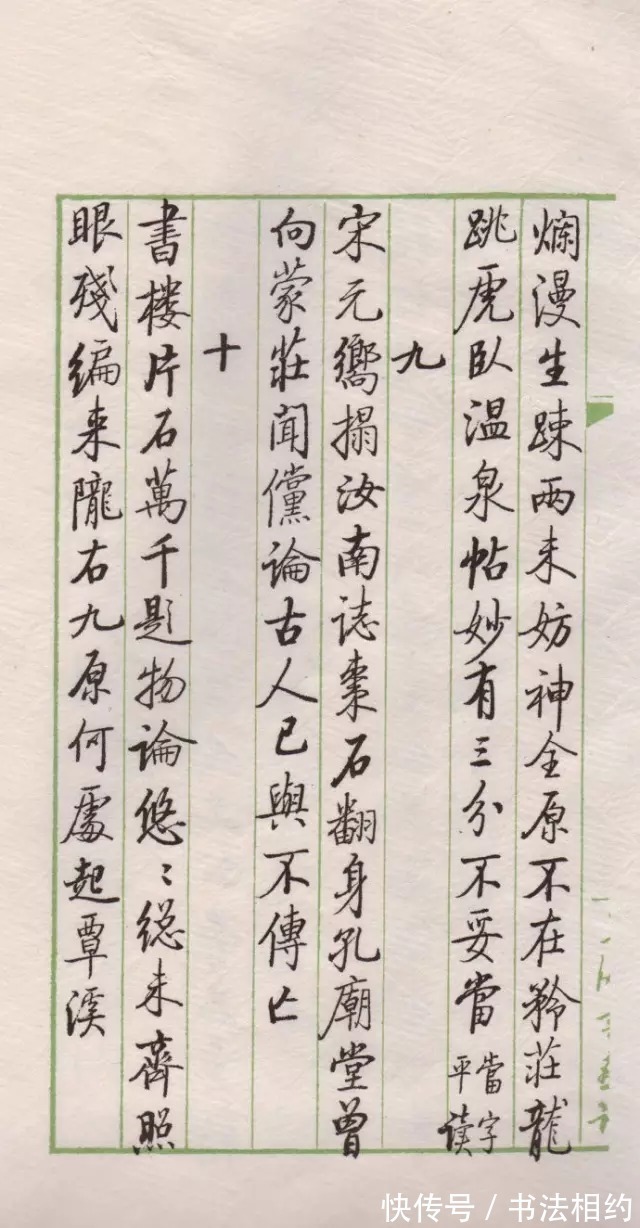 爛漫生踈兩未妨神全原不在矜莊龍
跳虎臥温泉帖妙有三分不妥當
當字
平读
九
宋元嚮搨汝南誌棗石翻身孔廟堂曾
向蒙莊聞儻論古人已與不傳亡
十
書楼片石萬千題物論悠〻総未齊照
眼殘编来隴右九原何處起覃溪
快传号 / 书法相约